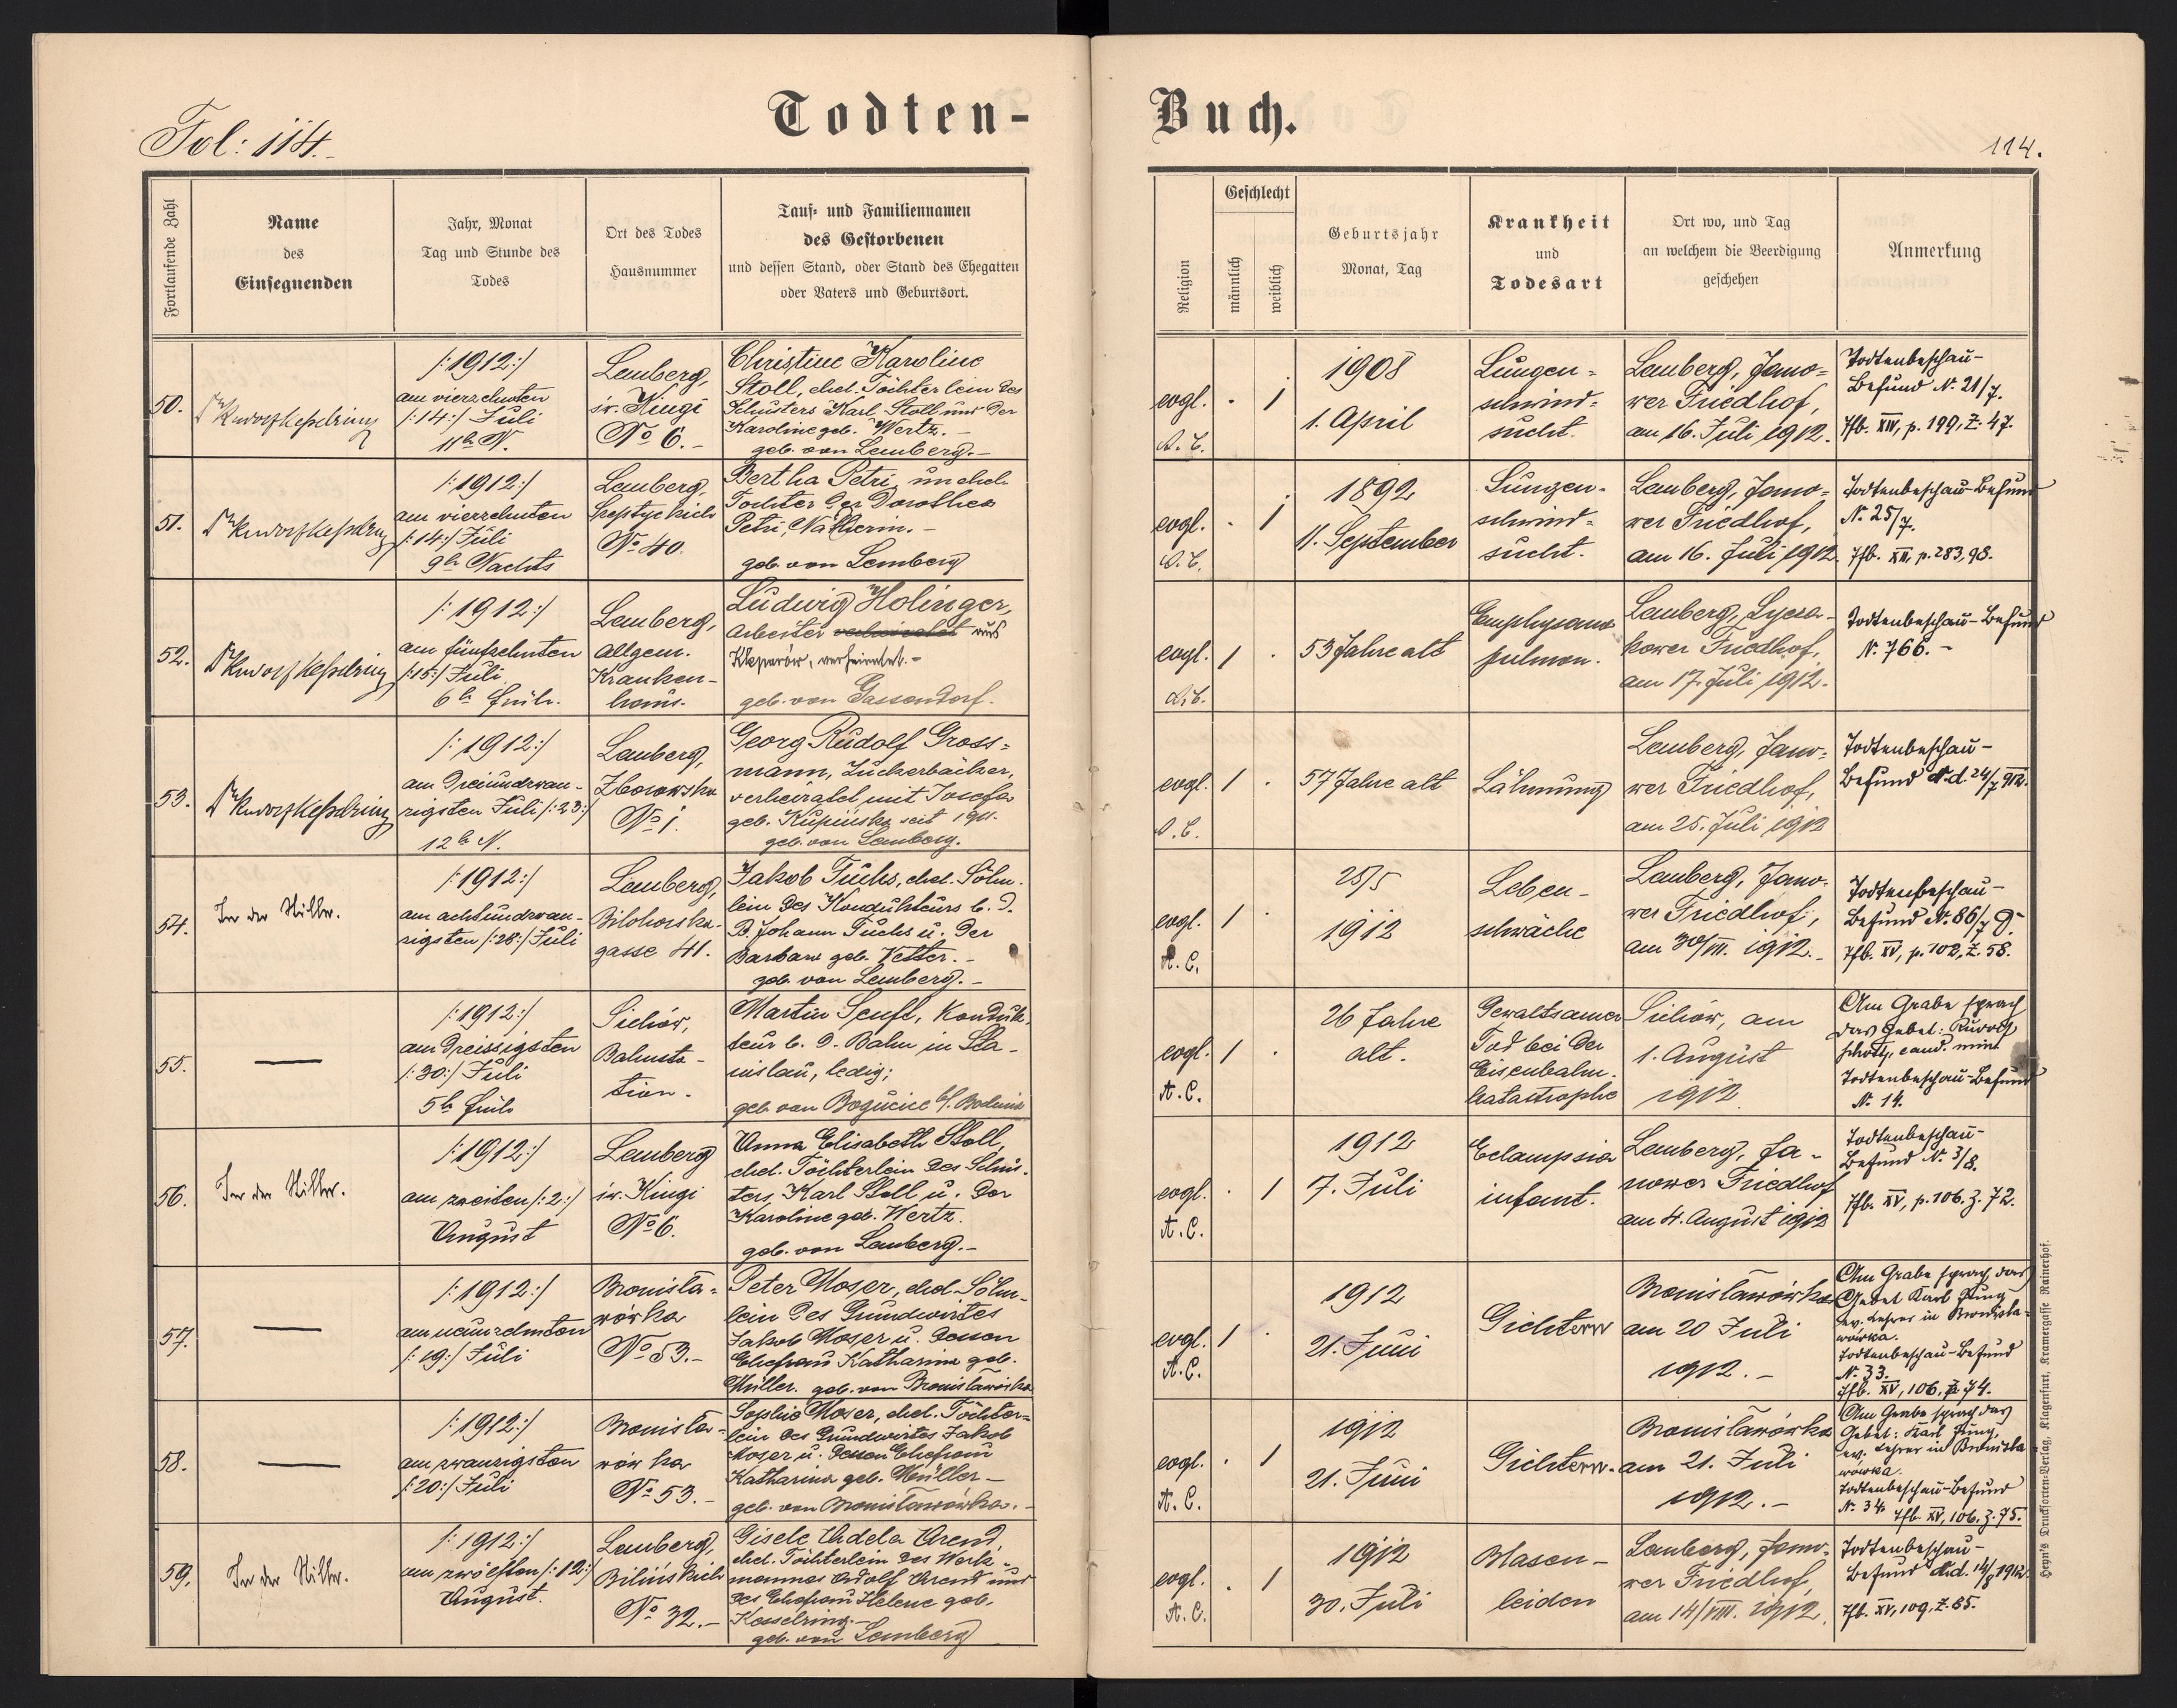 Fol: 114.-
Todten-
Buch.
114.
Fortlaufende Zahl
Name
des
Einsegnenden
Jahr, Monat
Tag und Stunde des
Todes
Ort des Todes
Hausnummer
Tauf- und Familiennamen
des Gestorbenen
und dessen Stand, oder Stand des Ehegatten
oder Vaters und Geburtsort.
Religion
Geschlecht
männlich
weiblich
Geburtsjahr
Monat, Tag
Krankheit
und
Todesart
Ort wo, und Tag
an welchem die Beerdigung
geschehen
Anmerkung
50.
Rudolf Kesselring
/:1912:/
am vierzehnten
/:14:/ Juli
11h N.
Lemberg,
św. Kingi
No 6.-
Christine Karoline
Stoll, ehel. Töchterlein des
Schusters Karl Stoll und der
Karoline geb. Wertz.-
geb. von Lemberg.-
evgl.
A. C.
. 1
1908
1. April
Lungen-
schwind-
sucht.
Lemberg, Jano-
wer Friedhof,
am 16. Juli 1912.
Todtenbeschau-
Befund N. 21/7.
Tfb. XIV, p. 199, Z. 47.
51.
Rudolf Kesselring
/:1912:/
am vierzehnten
/:14:/ Juli
9h Nachts
Lemberg,
Szeptyckich
No 40.
Bertha Petri, unehel.
Tochter der Dorothea
Petri, Näherin.-
geb. von Lemberg
evgl.
A. C.
. 1
1892
11. September
Lungen-
schwind-
sucht.
Lemberg, Jano-
wer Friedhof,
am 16. Juli 1912.
Todtenbeschau-Befund
N. 25/7.
Tfb. XII, p. 283, 98.
52.
Rudolf Kesselring
/:1912:/
am fünfzehnten
/:15:/ Juli
6h früh.
Lemberg,
allgem.
Kranken-
haus.
Ludwig Holinger,
Arbeiter verheiratet aus
Kleparów, verheiratet.-
geb. von Gassendorf.
evgl.
A. C.
1 .
53 Jahre alt
Emphysema
pulmon.
Lemberg, Lycza-
kower Friedhof,
am 17. Juli 1912.
Todtenbeschau-Befund
N. 766.-
53.
Rudolf Kesselring
/:1912:/
am dreiundzwan-
zigsten Juli /:23:/
12h N.
Lemberg,
Zborowska
No 1.
Georg Rudolf Gross-
mann, Zuckerbäcker,
verheiratet mit Josefa
geb. Kupinska seit 1911.
geb. von Lemberg.
evgl.
A. C.
1 .
57 Jahre alt
Lähmung
Lemberg, Jano-
wer Friedhof,
am 25. Juli 1912
Todtenbeschau-
Befund d.d. 24/7 912.
54.
In der Stille.
/:1912:/
am achtundzwan-
zigsten /:28:/ Juli
Lemberg,
Bilohorska-
gasse 41.
Jakob Fuchs, ehel. Söhn-
lein des Kondukteurs b. d.
B. Johann Fuchs u. der
Barbara geb. Vetter.-
geb. von Lemberg.-
evgl.
A. C.
1 .
25/5
1912
Leben-
schwäche
Lemberg, Jano-
wer Friedhof,
am 30/VII. 1912.-
Todtenbeschau-
Befund N. 86/7
Tfb. XV, p. 102, Z. 58.
55.
—
/:1912:/
am dreissigsten
/:30:/ Juli
5h früh
Sichów,
Bahnsta-
tion.
Martin Senft, Konduk-
teur b. d. Bahn in Sta-
nislau, ledig;
geb. von Bogucice b/. Bochnia
evgl.
A. C.
1 .
26 Jahre
alt.
Gewaltsamer
Tod bei der
Eisenbahn-
katastrophe
Sichów, am
1. August
1912
Am Grabe sprach
das Gebet: Rudolf
cand. min.
Todtenbeschau-Befund
N. 14.
56.
In der Stille.
/:1912:/
am zweiten /:2:/
August
Lemberg
św. Kingi
No 6.
Anna Elisabeth Stoll,
ehel. Töchterlein des Schus-
ters Karl Stoll u. der
Karoline geb. Wertz.
geb. von Lemberg.-
evgl.
A. C.
. 1
1912
7. Juli
Eclampsia
infant.
Lemberg, Ja-
nower Friedhof
am 4. August 1912
Todtenbeschau-
Befund N. 3/8.
Tfb. XV, p. 106. Z. 72.
57.
—
/:1912:/
am neunzehnten
/:19:/ Juli
Bronisla-
wówka
No 53.-
Peter Moser, ehel. Söhn-
lein des Grundwirtes
Jakob Moser u. dessen
Ehefrau Katharina geb.
Müller. geb. von Bronislawówka
evgl.
A. C.
1 .
1912
21. Juni
Gichtern
Bronislawówka
am 20 Juli
1912.-
Am Grabe sprach das
Gebet Karl Jung
ev. Lehrer in Bronisla-
wówka.
Todtenbeschau-Befund
N. 33.
Tfb. XV, 106, Z. 74.
58.
—
/:1912:/
am zwanzigsten
/:20:/ Juli
Bronisla-
wówka
No 53.-
Sophie Moser, ehel. Töchter-
lein des Grundwirtes Jakob
Moser u. dessen Ehefrau
Katharina geb. Müller-
geb. von Bronislawówka.-
evgl.
A. C.
. 1
1912
21. Juni
Gichtern.
Bronislawówka
am 21. Juli
1912.-
Am Grabe sprach das
Gebet: Karl Jung,
ev. Lehrer in Bronisla-
wówka.
Todtenbeschau-Befund
N. 34. Tfb. XV, 106. Z. 75.
59.
In der Stille.
/:1912:/
am zwölften /:12:/
August.
Lemberg,
Bilińskich
No 32.-
Gisele Adela Arend,
ehel. Töchterlein des Werk-
mannes Adolf Arend und
des Ehefrau Helene geb.
Kesselring.-
geb. von Lemberg
evgl.
A. C.
. 1
1912
30. Juli
Blasen-
leiden
Lemberg, Jano-
wer Friedhof,
am 14/VIII. 1912.
Todtenbeschau-
Befund d.d. 14/8 1912.
Tfb. XV, 109, Z. 85.
Heyn's Drucksorten-Verlag, Klagenfurt, Kramergasse Rainerhof.